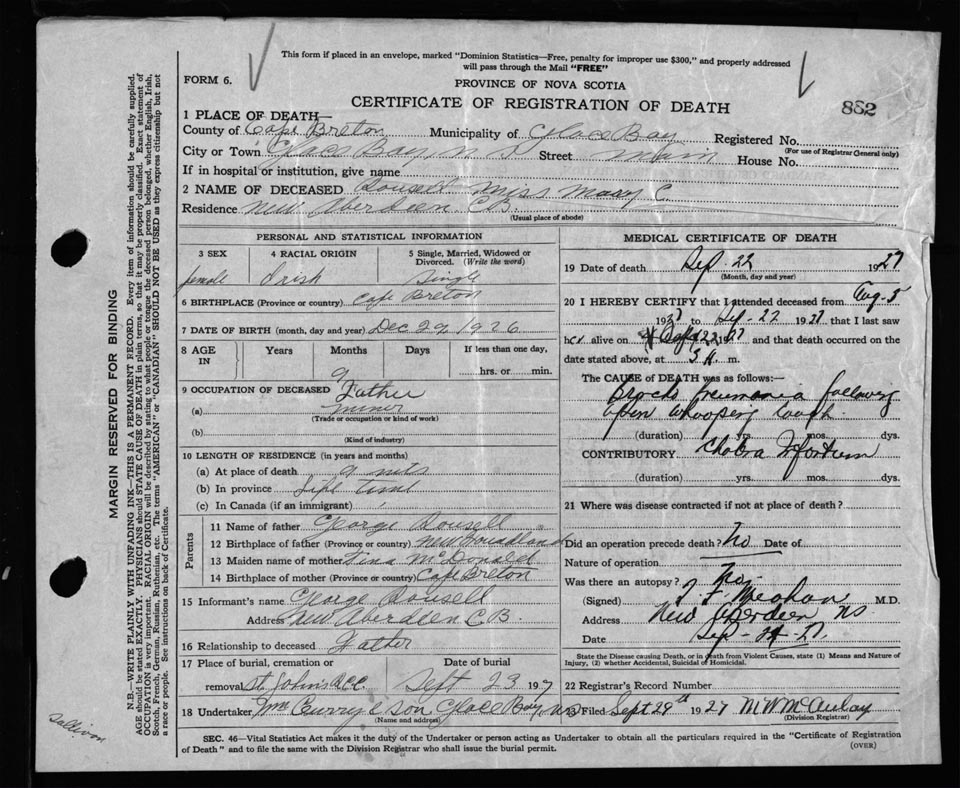 This form if placed in an envelope, marked "Dominion Statistics—Free, penalty for improper use $300," and properly addressed
will pass through the Mail "FREE"
FORM 6.
PROVINCE OF NOVA SCOTIA
CERTIFICATE OF REGISTRATION OF DEATH
882
1 PLACE OF DEATH—
County of Cape Breton Municipality of Glace Bay Registered No.
(For use of Registrar General only)
City or Town Glace Bay, N S Street Main House No.
If in hospital or institution, give name
2 NAME OF DECEASED Dousell Miss Mary C.
Residence New Aberdeen C.B.
(Usual place of abode)
PERSONAL AND STATISTICAL INFORMATION
3 SEX 4 RACIAL ORIGIN 5 Single, Married, Widowed or
Divorced. (Write the word)
female Irish Single
6 BIRTHPLACE (Province or country) Cape Breton
7 DATE OF BIRTH (month, day and year) Dec 29 1926
8 AGE IN Years Months Days If less than one day,
9 hrs. or min.
9 OCCUPATION OF DECEASED Father
(a) miner
(Trade or occupation or kind of work)
(b)
(Kind of industry)
10 LENGTH OF RESIDENCE (in years and months)
(a) At place of death 9 mts
(b) In province Life time
(c) In Canada (if an immigrant)
Parents
11 Name of father George Dousell
12 Birthplace of father (Province or country) New Foundland
13 Maiden name of mother Tina McDonald
14 Birthplace of mother (Province or country) Cape Breton
15 Informant's name George Dousell
Address New Aberdeen C.B.
16 Relationship to deceased Father
17 Place of burial, cremation or Date of burial
removal St Johns Sept 23 1927
18 Undertaker Wm Curry & son Glace Bay, NS
(Name and address)
MEDICAL CERTIFICATE OF DEATH
19 Date of death Sep. 22 1927
(Month, day and year)
20 I HEREBY CERTIFY that I attended deceased from Aug-5
1927 to Sep-22 1927 that I last saw
her alive on 22 1927 and that death occurred on the
date stated above, at 3 m.
The CAUSE of DEATH was as follows:
Broncho pneumonia following
upon Whooping Cough.
(duration) yrs. mos. dys.
CONTRIBUTORY Cholera Infantum
(duration) yrs. mos. dys.
21 Where was disease contracted if not at place of death?
Did an operation precede death? No Date of
Nature of operation
Was there an autopsy? No.
(Signed) J. F. Meahan M.D.
Address New Aberdeen NS
Date Sep-24-27
State the Disease causing Death, or in death from Violent Causes, state (1) Means and Nature of
Injury, (2) whether Accidental, Suicidal or Homicidal.
22 Registrar's Record Number
23 Filed Sept 29th 1927 M W McAulay
(Division Registrar)
SEC. 46—Vital Statistics Act makes it the duty of the Undertaker or person acting as Undertaker to obtain all the particulars required in the "Certificate of Registration
of Death" and to file the same with the Division Registrar who shall issue the burial permit.
(OVER)
MARGIN RESERVED FOR BINDING
N.B.—WRITE PLAINLY WITH UNFADING INK—THIS IS A PERMANENT RECORD. Every item of information should be carefully supplied.
AGE should be stated EXACTLY. PHYSICIANS should STATE CAUSE OF DEATH in plain terms, so that it may be properly classified. Exact statement of
OCCUPATION is very important. RACIAL ORIGIN will be described by stating to what people or tongue the deceased person belonged, whether English, Irish,
Scotch, French, German, Russian, Ruthenian, etc. The terms "AMERICAN" or "CANADIAN" SHOULD NOT BE USED as they express citizenship but not
a race or people. See instructions on back of Certificate.
Sullivan